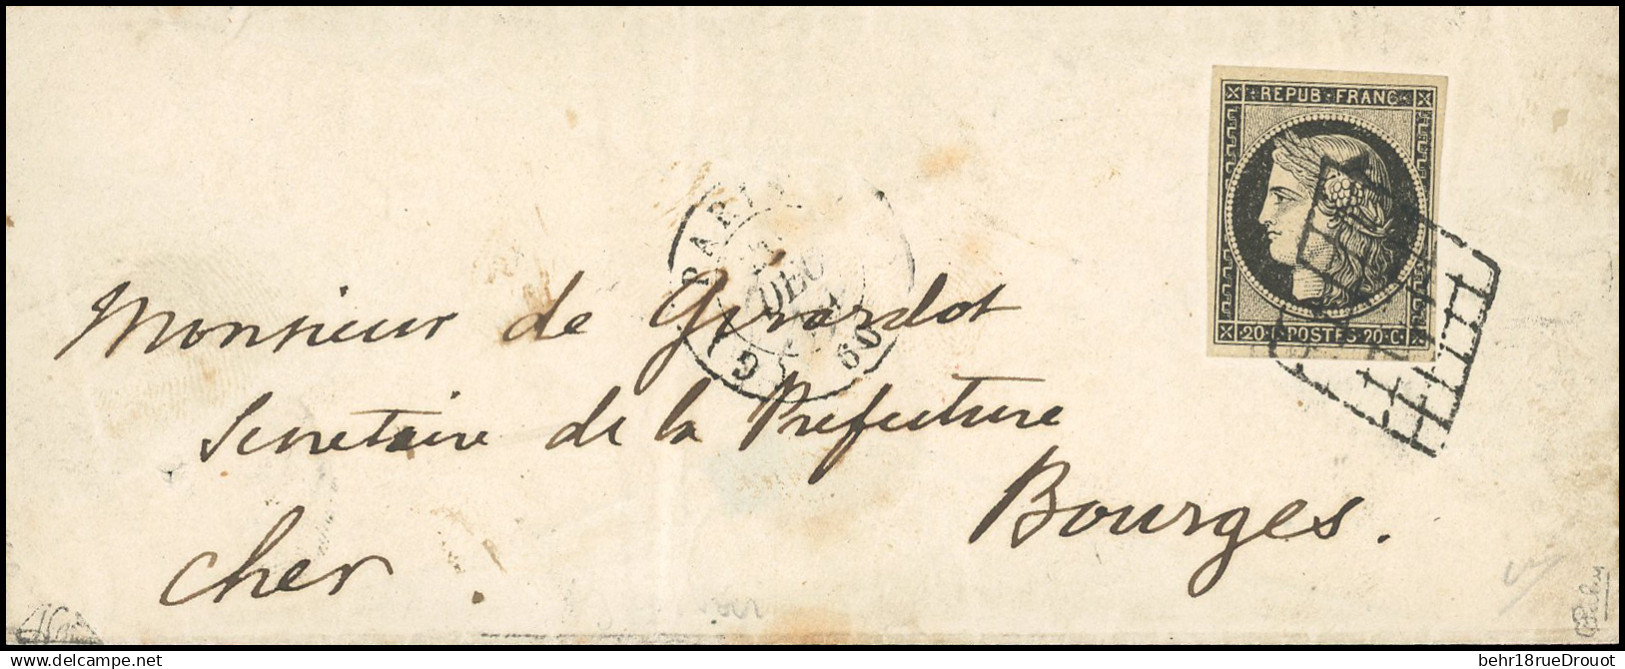 REPUB·FRANC
20·C·POSTES·20·C·
PARIS
DEC
60
Monsieur de Girardot
Secretaire de la Prefecture
Bourges.
Cher.
delcampe.net
behr18rueDrouot